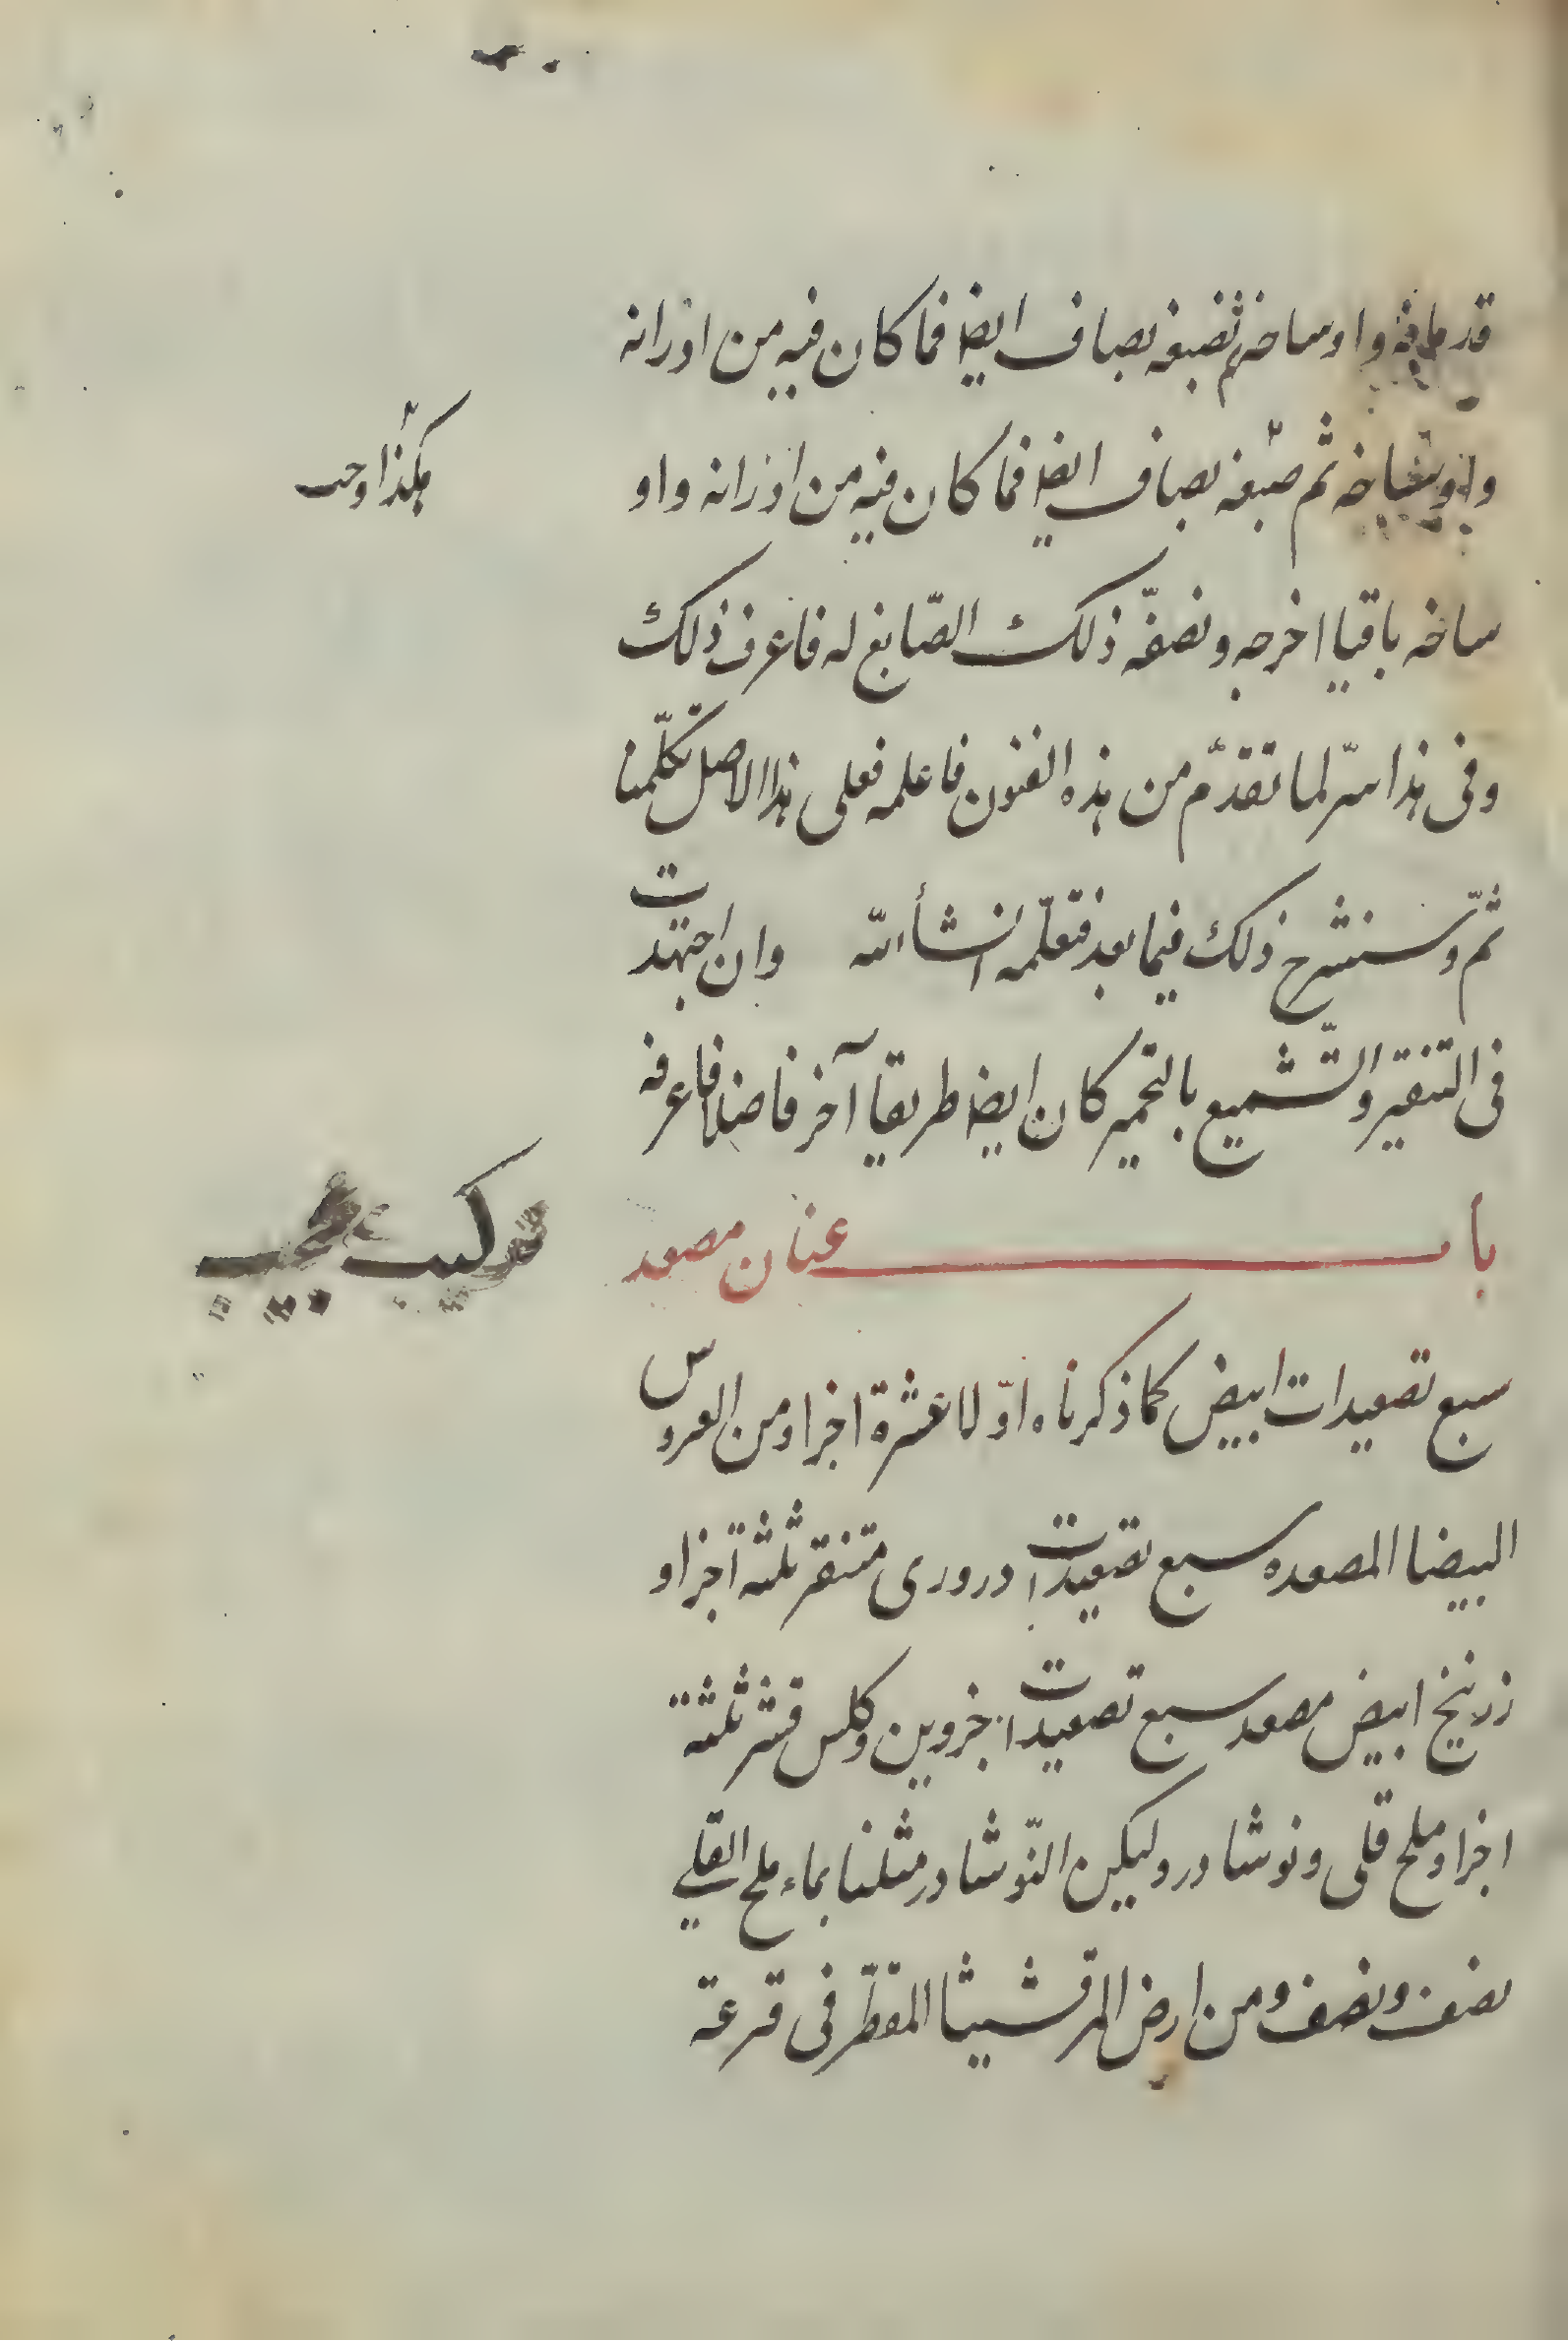 قد مافيه واوساخه ثم تصبغه بصاف ايضا فما كان فيه من اوزانه
واوساخه ثم صبغه بصاف ايضا فما كان فيه من اوزانه واو
هكذا وجد
ساخه باقيا اخرجه ونصفّه ذلك الصّابغ له فاعرف ذلك
وفى هذا سرّ لما تقدّم من هذه الفنون فاعلمه فعلى هذا الاصل تكلّمنا
ثمّ وسنشرح ذلك فيما بعد فتعلّمه انشأ الله وان اجتهدت
فى التنقير والتّشميع بالتخمير كان ايضا طريقا آخر فاضلا فاعرفه
باب عنان مصعد
تركيب عجيب
سبع تصعيدات ابيض كما ذكرناه اوّلا عشرة اجزا ومن العروس
البيضا المصعده سبع تصعيدات دروري متنقر ثلثة اجزا و
زرنيخ ابيض مصعد سبع تصعيدات جزوين وكلس قشر ثلثة
اجزا وملح قلى ونوشادر وليكن النّوشادر مثلثا بماء ملح القلى
نصف ونصف ومن ارض المرقشيثا المقطّر فى قرعة